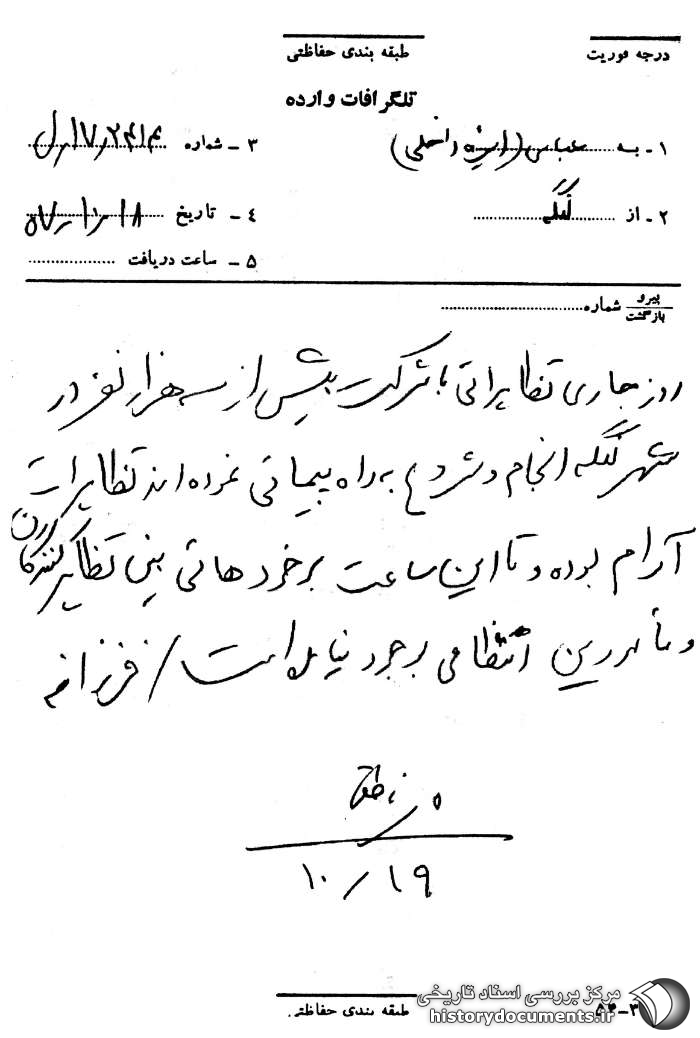 درجه فوریت
طبقه بندی حفاظتی
تلگرافات وارده
۱ - به عباس (امنیت داخلی)
۳ - شماره
۲ - از لنگه
۴ - تاریخ ۱۸ر۱۰ر۵۷
۵ - ساعت دریافت
پیرو
بازگشت شماره
روز جاری تظاهراتی با شرکت بیش از سه هزار نفر در
شهر لنگه انجام و شروع به راه پیمائی نموده اند تظاهرات
آرام بوده و تا این ساعت برخوردهائی بین تظاهرکنندگان
و مامورین انتظامی بوجود نیامده است / فرزانه
۱۹/۱۰
طبقه بندی حفاظتی
۵۴-۳
مرکز بررسی اسناد تاریخی
historydocuments.ir